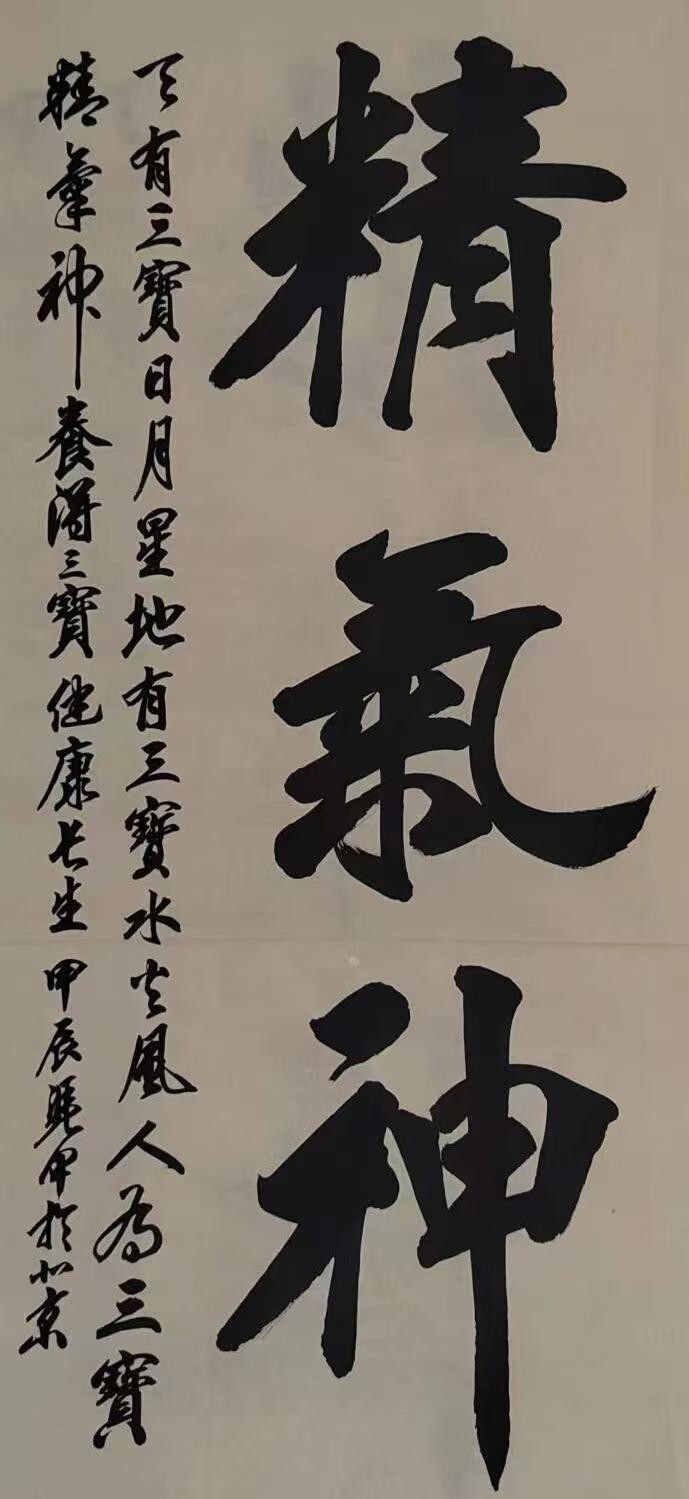 精氣神
天有三寶日月星地有三寶水火風人為三寶
精氣神養得三寶健康長生甲辰甲於北京